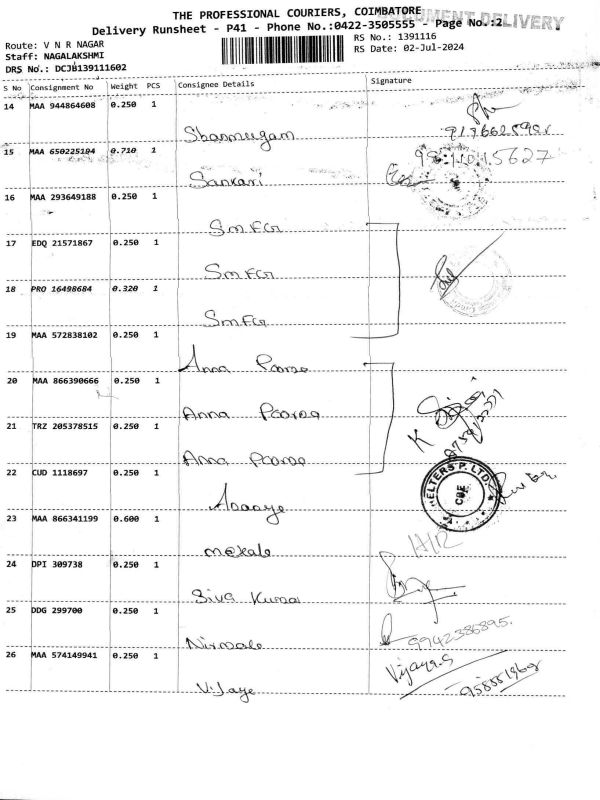 THE PROFESSIONAL COURIERS, COIMBATORE
DOCUMENT DELIVERY
Delivery Runsheet - P41 - Phone No.:0422-3505555 - Page No.:2
Route: V N R NAGAR
RS No.: 1391116
Staff: NAGALAKSHMI
RS Date: 02-Jul-2024
DRS No.: DCJB139111602
S No Consignment No Weight PCS Consignee Details Signature
14 MAA 944864608 0.250 1
Shanmugam
15 MAA 650225104 0.710 1
Sankari
16 MAA 293649188 0.250 1
SMFG
17 EDQ 21571867 0.250 1
SMFG
18 PRO 16498684 0.320 1
SMFG
19 MAA 572838102 0.250 1
Anna Poorna
20 MAA 866390666 0.250 1
Anna Poorna
21 TRZ 205378515 0.250 1
Anna Poorna
22 CUD 1118697 0.250 1
ELTERS P. LTD.
CBE
23 MAA 866341199 0.600 1
Mekala
24 DPI 309738 0.250 1
Siva Kumar
25 DDG 299700 0.250 1
9942386895.
Nirmala
26 MAA 574149941 0.250 1
Vijaya.S
Vijaye